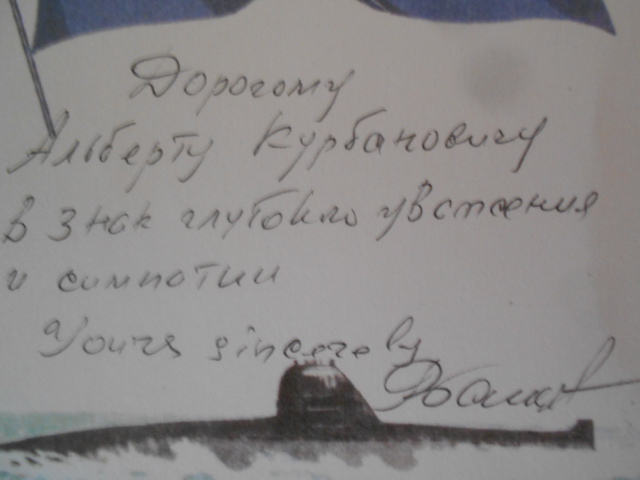 Дорогому
Альберту Курбановичу
в знак глубокого уважения
и симпатии
Yours sincerely